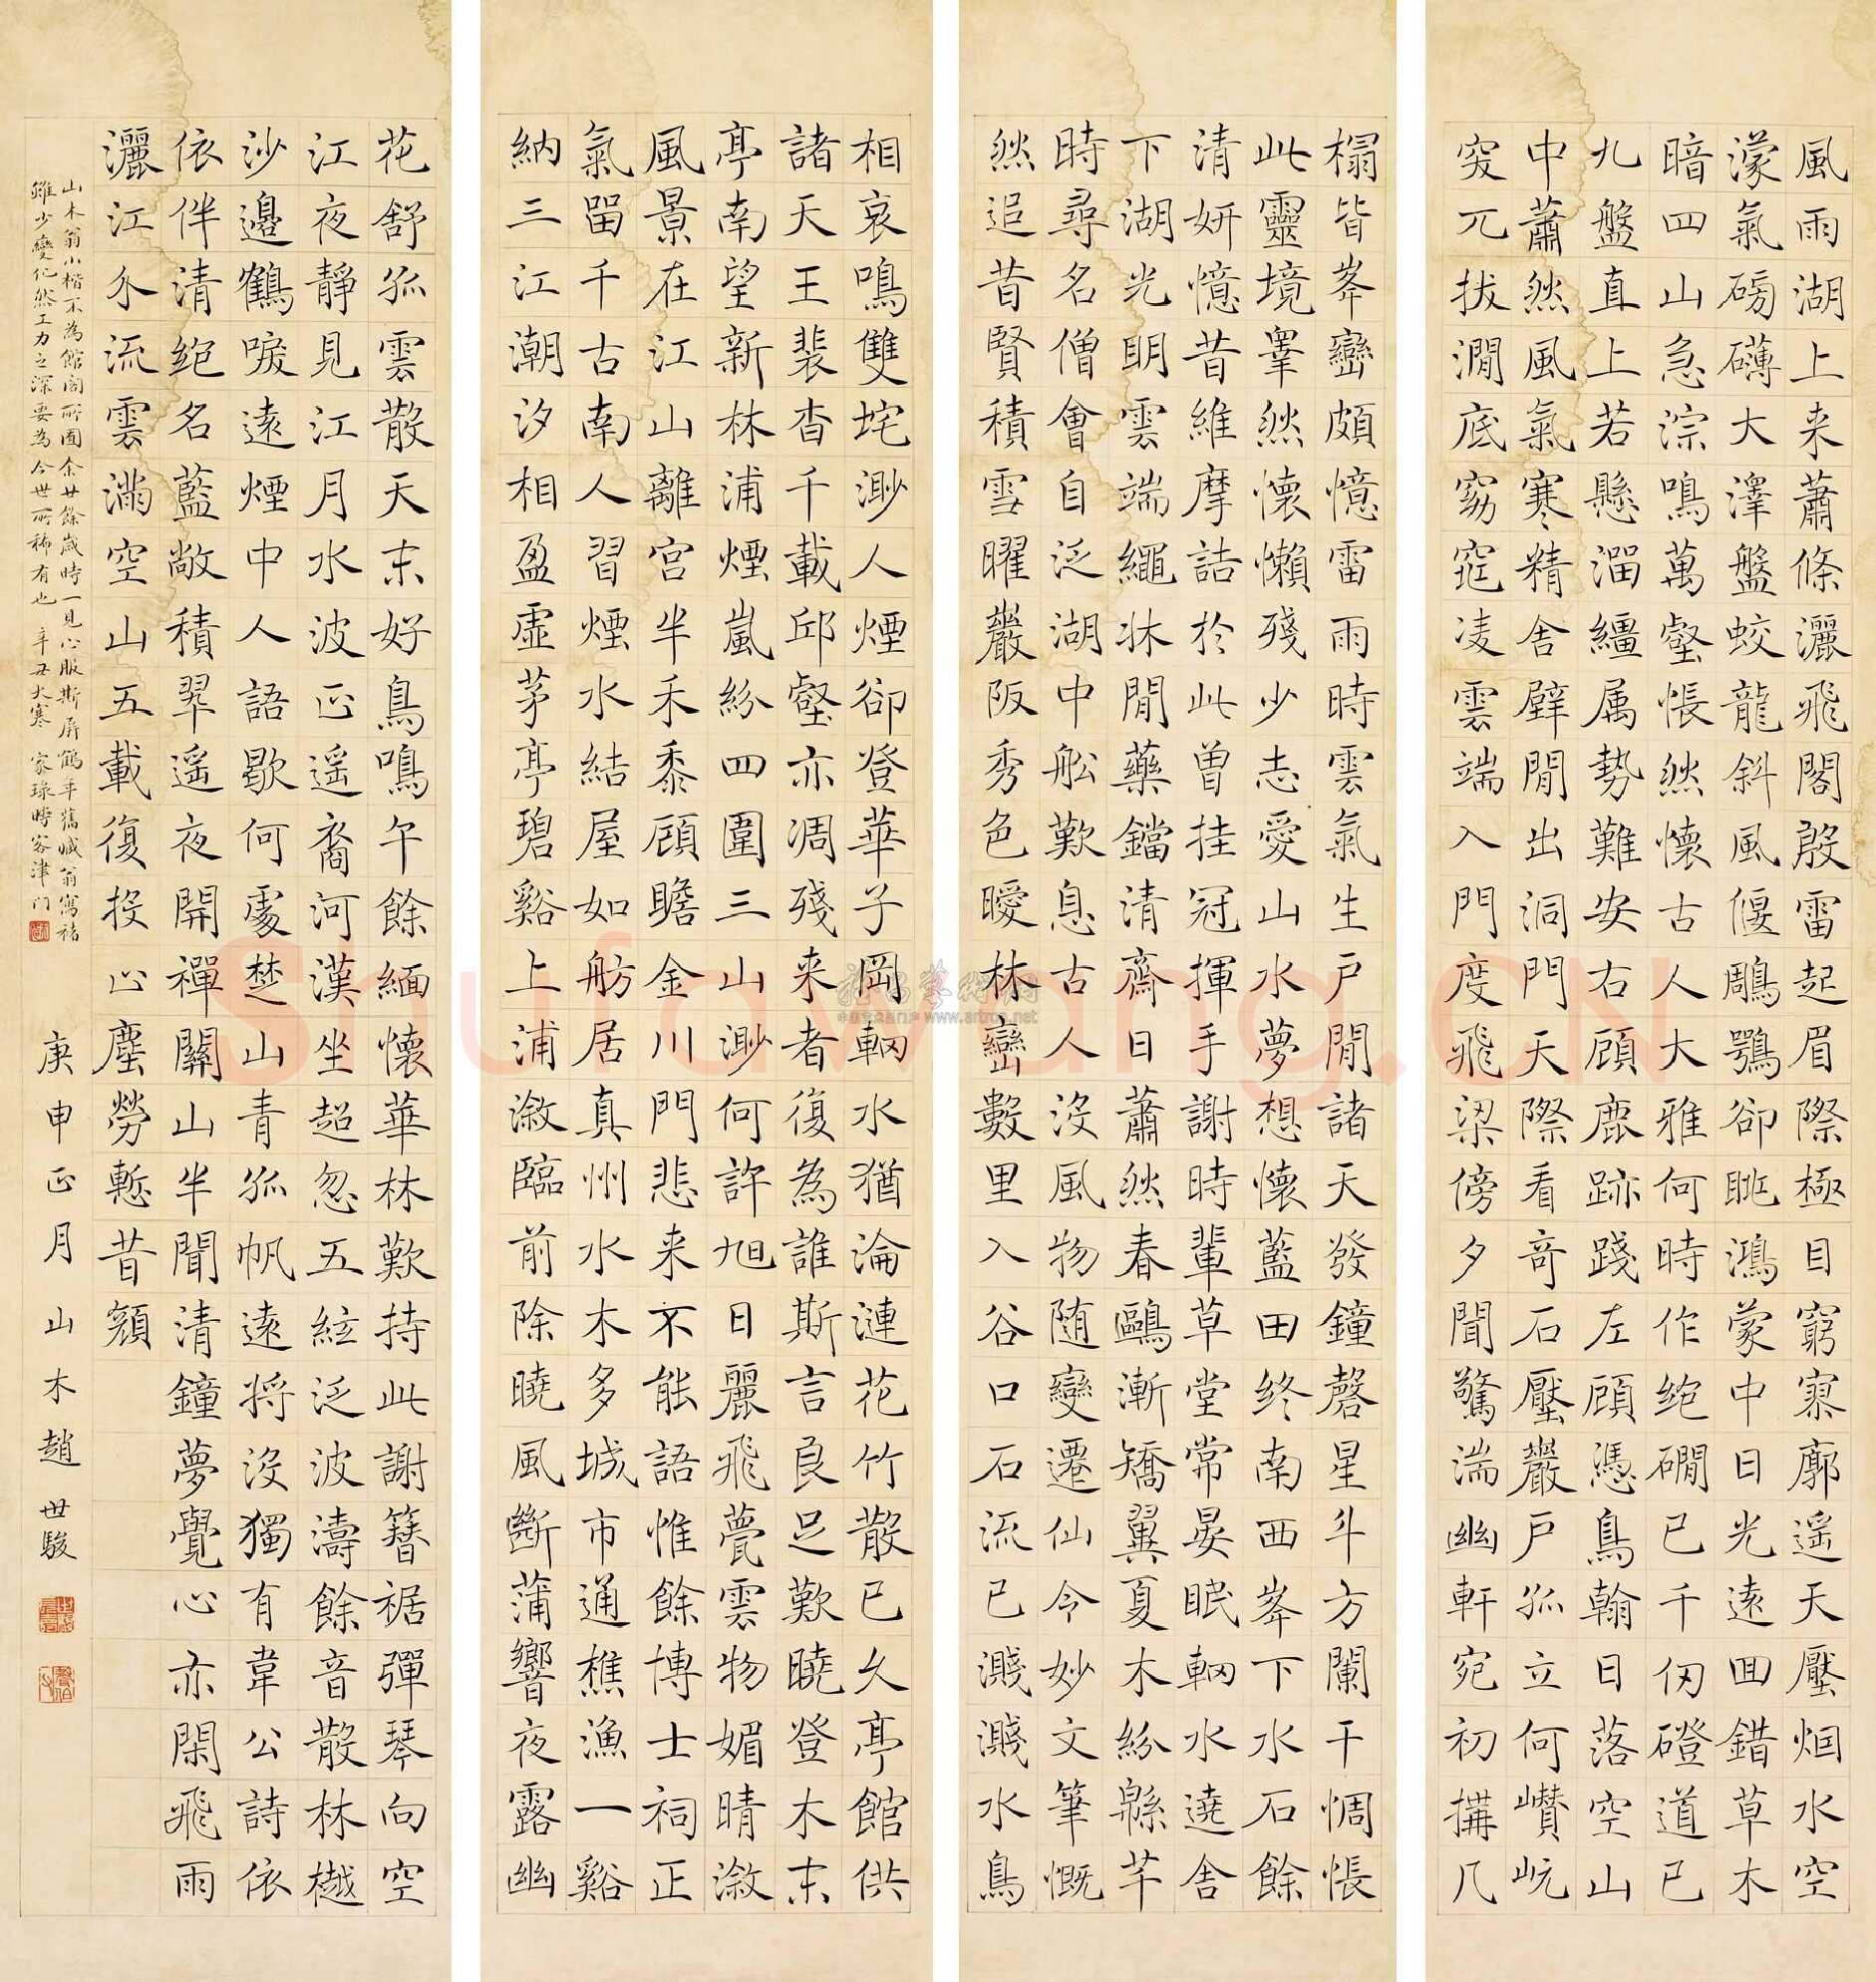 風雨湖上来蕭條灑飛閣殷雷起眉際極目窮寥廓遥天壓烟水空
濛氣磅礴大澤盤蛟龍斜風偃鵰鶚卻眺鴻蒙中日光遠回錯草木
暗四山急淙鳴萬壑悵然懷古人大雅何時作絶磵已千仞磴道已
九盤直上若懸溜繮属勢難安右顧鹿跡踐左顧憑鳥翰日落空山
中蕭然風氣寒精舍闢閒出洞門天際看奇石壓巖户孤立何巑岏
突兀拔澗底窈窕凌雲端入門度飛梁傍夕聞驚湍幽軒宛初搆几
榻皆峯巒頗憶雷雨時雲氣生户閒諸天發鐘磬星斗方闌干惆悵
此靈境睪然懷懶殘少志愛山水夢想懷藍田终南西峯下水石餘
清妍憶昔維摩詰於此曽挂冠揮手謝時輩草堂常晏眠輞水遶舍
下湖光明雲端繩牀閒藥鐺清齋日蕭然春鷗漸矯翼夏木紛緜芊
時尋名僧會自泛湖中舩歎息古人沒風物随變遷仙令妙文筆慨
然追昔賢積雪曜巖阪秀色曖林巒數里入谷口石流已濺濺水鳥
相哀鳴雙垞渺人煙卻登華子岡輞水猶淪漣花竹散已久亭館供
諸天王裴杳千載邱壑亦凋殘来者復為誰斯言良足歎曉登木末
亭南望新林浦煙嵐紛四圍三山渺何許旭日麗飛甍雲物媚晴溆
風景在江山離宫半禾黍顧瞻金川門悲来不能語惟餘博士祠正
氣留千古南人習煙水結屋如舫居真州水木多城市通樵漁一谿
納三江潮汐相盈虚茅亭碧谿上浦溆臨前除曉風斷蒲響夜露幽
花舒孤雲散天末好鳥鳴午餘緬懷華林歎持此謝簪裾彈琴向空
江夜靜見江月水波正遥裔河漢坐超忽五絃泛波濤餘音散林樾
沙邊鶴唳遠煙中人語歇何處楚山青孤帆遠将沒獨有韋公詩依
依伴清絶名藍敞積翠遥夜開禪關山半聞清鐘夢覺心亦閑飛雨
灑江介流雲滿空山五載復投止塵勞慙昔顔
庚申正月 山木趙世駿
山木翁小楷不為館閣所囿余廿餘歲時一見心服斯屏鶴年舊臧翁寫褚
雖少變化然工力之深要為今世所稀有也 辛丑大寒 家琭時客津门